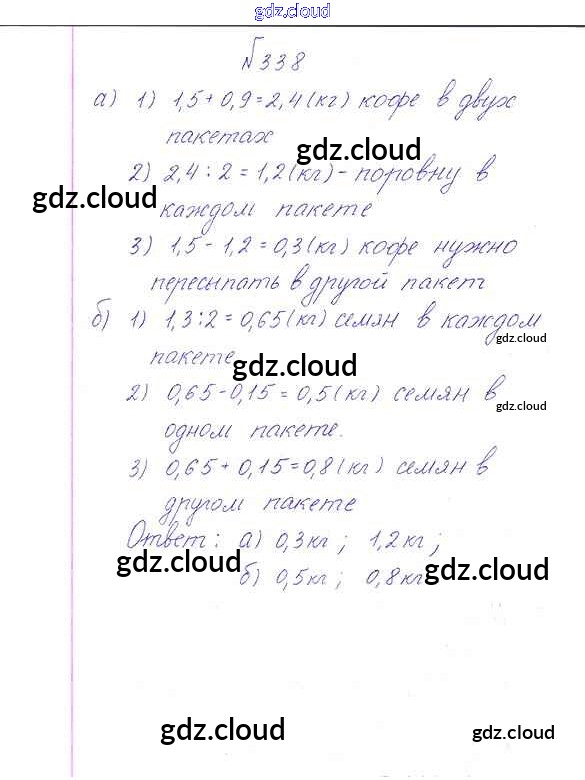 gdz.cloud
№338
а) 1) 1,5 + 0,9 = 2,4 (кг) кофе в двух
пакетах
gdz.cloud
2) 2,4 : 2 = 1,2 (кг) - поровну в
gdz.cloud
каждом пакете
3) 1,5 - 1,2 = 0,3 (кг) кофе нужно
пересыпать в другой пакет
б) 1) 1,3 : 2 = 0,65 (кг) семян в каждом
gdz.cloud
пакете
gdz.cloud
2) 0,65 - 0,15 = 0,5 (кг) семян в
gdz.cloud
одном пакете.
3) 0,65 + 0,15 = 0,8 (кг) семян в
другом пакете
Ответ: а) 0,3 кг ; 1,2 кг ;
gdz.cloud
б) 0,5 кг ; 0,8 кг
gdz.cloud
gdz.cloud
gdz.cloud